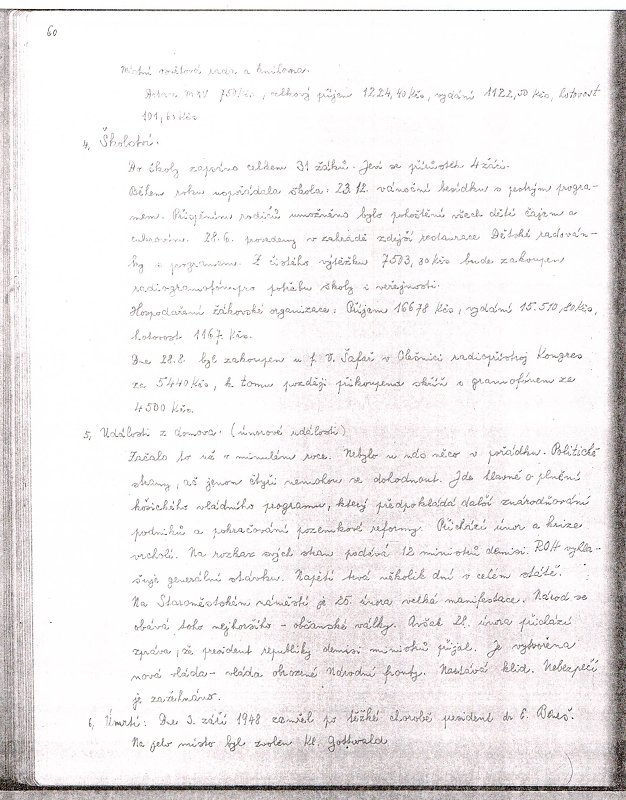 60
Místní osvětová rada a knihovna.
Dotace MNV 750 Kčs, celkový příjem 1224,40 Kčs, vydání 1122,50 Kčs, hotovost
101, Kčs
4, Školství.
Do školy zapsáno celkem 31 žáků. Jeví se přírůstek 4 žáci.
Během roku uspořádala škola: 23.12. vánoční besídku s pestrým progra-
mem. Přispěním rodičů umožněno bylo pohoštění všech dětí čajem a
cukrovím. 28.6. provedeny v zahradě zdejší restaurace Dětské radován-
ky s programem. Z čistého výtěžku 7503,30 Kčs bude zakoupen
radiogramofon pro potřebu školy i veřejnosti.
Hospodaření žákovské organizace: Příjem 16678 Kčs, vydání 15.510,80 Kčs,
hotovost 1167 Kčs.
Dne 28.2. byl zakoupen u f. V. Šafář v Olešnici radiopřístroj Kongres
za 5440 Kčs, k tomu později přikoupena skříň s gramofonem za
4500 Kčs.
5, Události z domova. (únorové události)
Začalo to už v minulém roce. Nebylo u nás něco v pořádku. Politické
strany, ač jenom čtyři nemohou se dohodnout. Jde hlavně o plnění
košického vládního programu, který předpokládá další znárodňování
podniků a pokračování pozemkové reformy. Přichází únor a krize
vrcholí. Na rozkaz svých stran podává 12 ministrů demisi. ROH vyhla-
šuje generální stávku. Napětí trvá několik dní v celém státě.
Na Staroměstském náměstí je 25. února velká manifestace. Národ se
obává toho nejhoršího - občanské války. Avšak 21. února přichází
zpráva, že president republiky demisi ministrů přijal. Je vytvořena
nová vláda - vláda obrozené Národní fronty. Nastává klid. Nebezpečí
je zažehnáno.
6, Úmrtí: Dne 3. září 1948 zemřel po těžké chorobě president dr E. Beneš.
Na jeho místo byl zvolen Kl. Gottwald